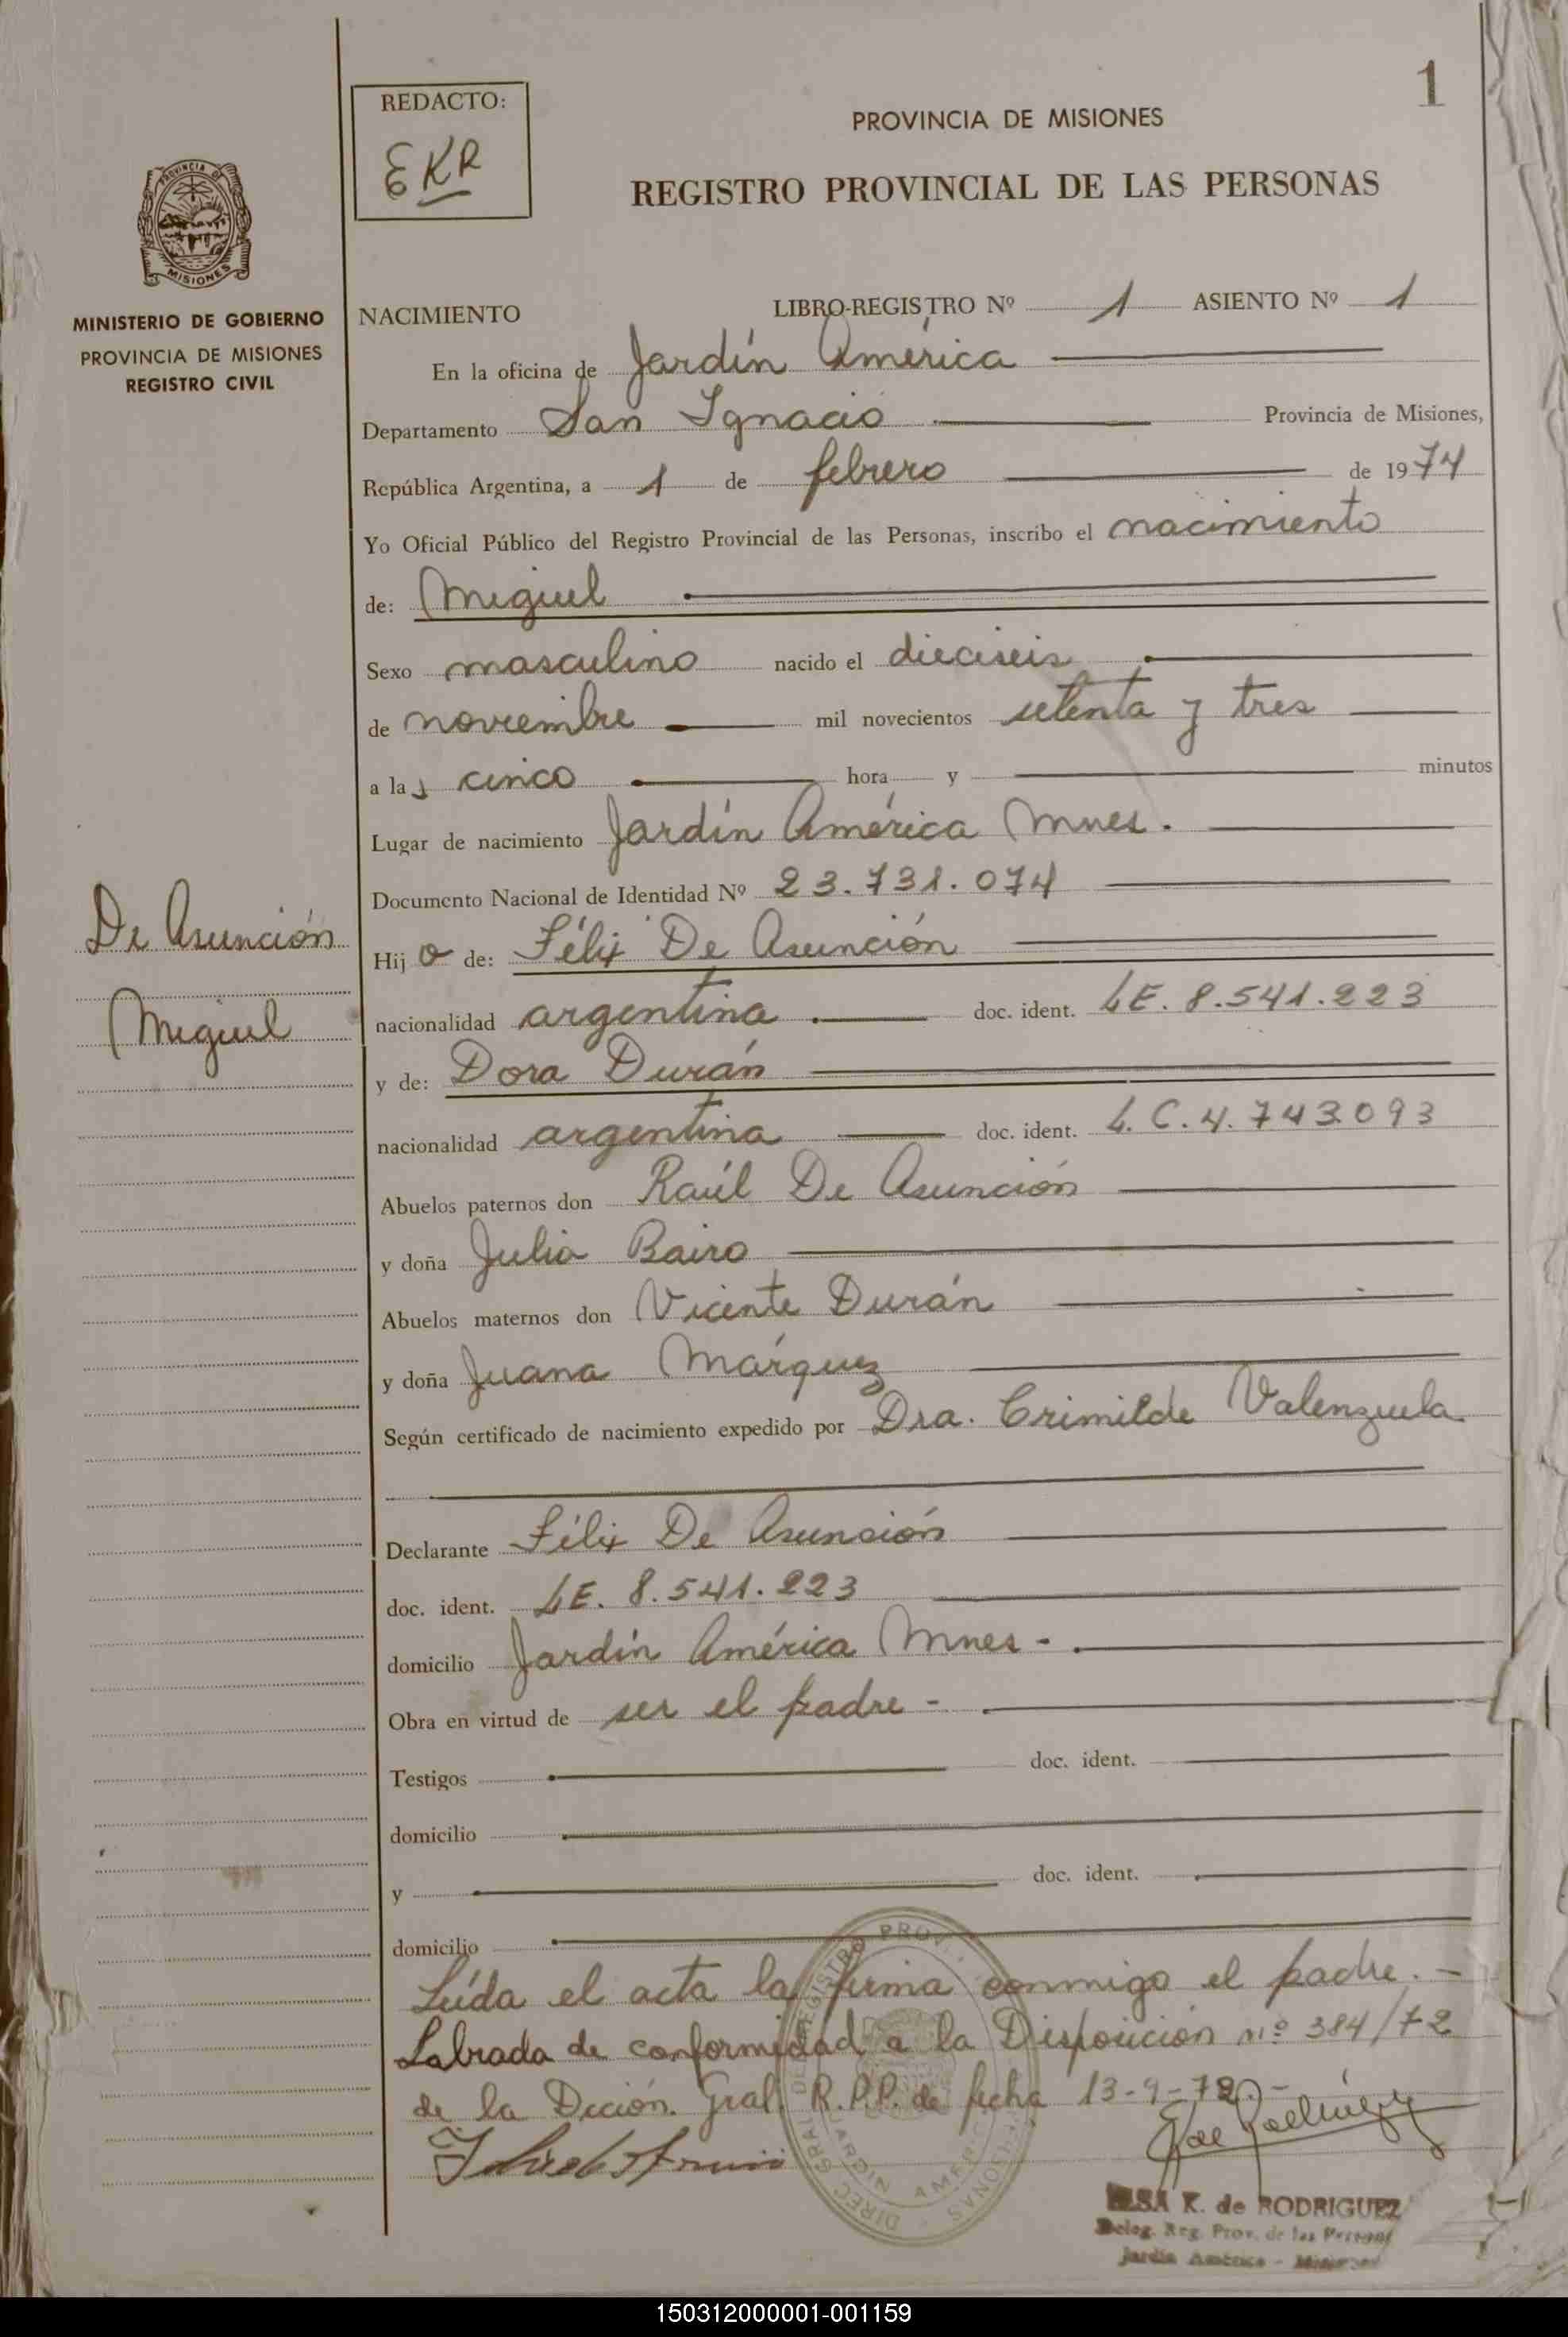 1
REDACTO:
EKR
PROVINCIA DE MISIONES
REGISTRO PROVINCIAL DE LAS PERSONAS
PROVINCIA DE
MISIONES
MINISTERIO DE GOBIERNO
PROVINCIA DE MISIONES
REGISTRO CIVIL
NACIMIENTO LIBRO-REGISTRO Nº 1 ASIENTO Nº 1
En la oficina de Jardín América
Departamento San Ignacio Provincia de Misiones,
República Argentina, a 1 de febrero de 1974
Yo Oficial Público del Registro Provincial de las Personas, inscribo el nacimiento
de: Miguel
Sexo masculino nacido el dieciseis
de noviembre mil novecientos setenta y tres
a las cinco hora y minutos
Lugar de nacimiento Jardín América Mnes.
Documento Nacional de Identidad Nº 23.731.074
De Asunción
Miguel
Hijo de: Félix De Asunción
nacionalidad argentina doc. ident. LE. 8.541.223
y de: Dora Durán
nacionalidad argentina doc. ident. L.C. 4.743.093
Abuelos paternos don Raúl De Asunción
y doña Julia Bairo
Abuelos maternos don Vicente Durán
y doña Juana Márquez
Según certificado de nacimiento expedido por Dra. Crimilde Valenzuela
Declarante Félix De Asunción
doc. ident. LE. 8.541.223
domicilio Jardín América Mnes -.
Obra en virtud de ser el padre -
Testigos doc. ident.
domicilio
y doc. ident.
domicilio
Leída el acta la firma conmigo el padre. -
Labrada de conformidad a la Disposición nº 384/72
de la Dción. Gral. R.P.P. de fecha 13-9-72. -
DIREC. GRAL. DE REGISTRO PROV. PERSONAS
JARDIN AMERICA
ELSA K. de RODRIGUEZ
Deleg. Reg. Prov. de las Personas
Jardín América - Misiones
150312000001-001159